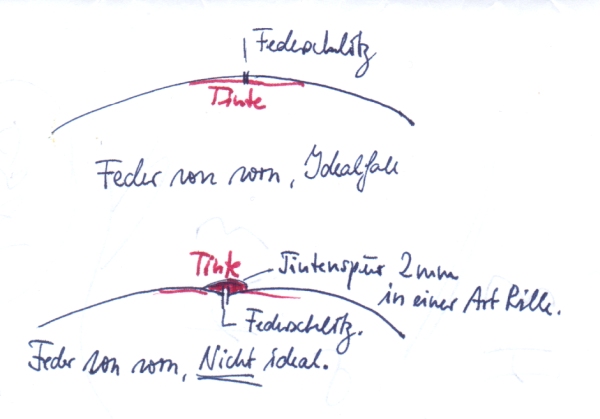 Federschlitz
Tinte
Feder von vorn, Idealfall
Tinte
Tintenspur 2mm
in einer Art Rille.
Federschlitz.
Feder von vorn, Nicht ideal.